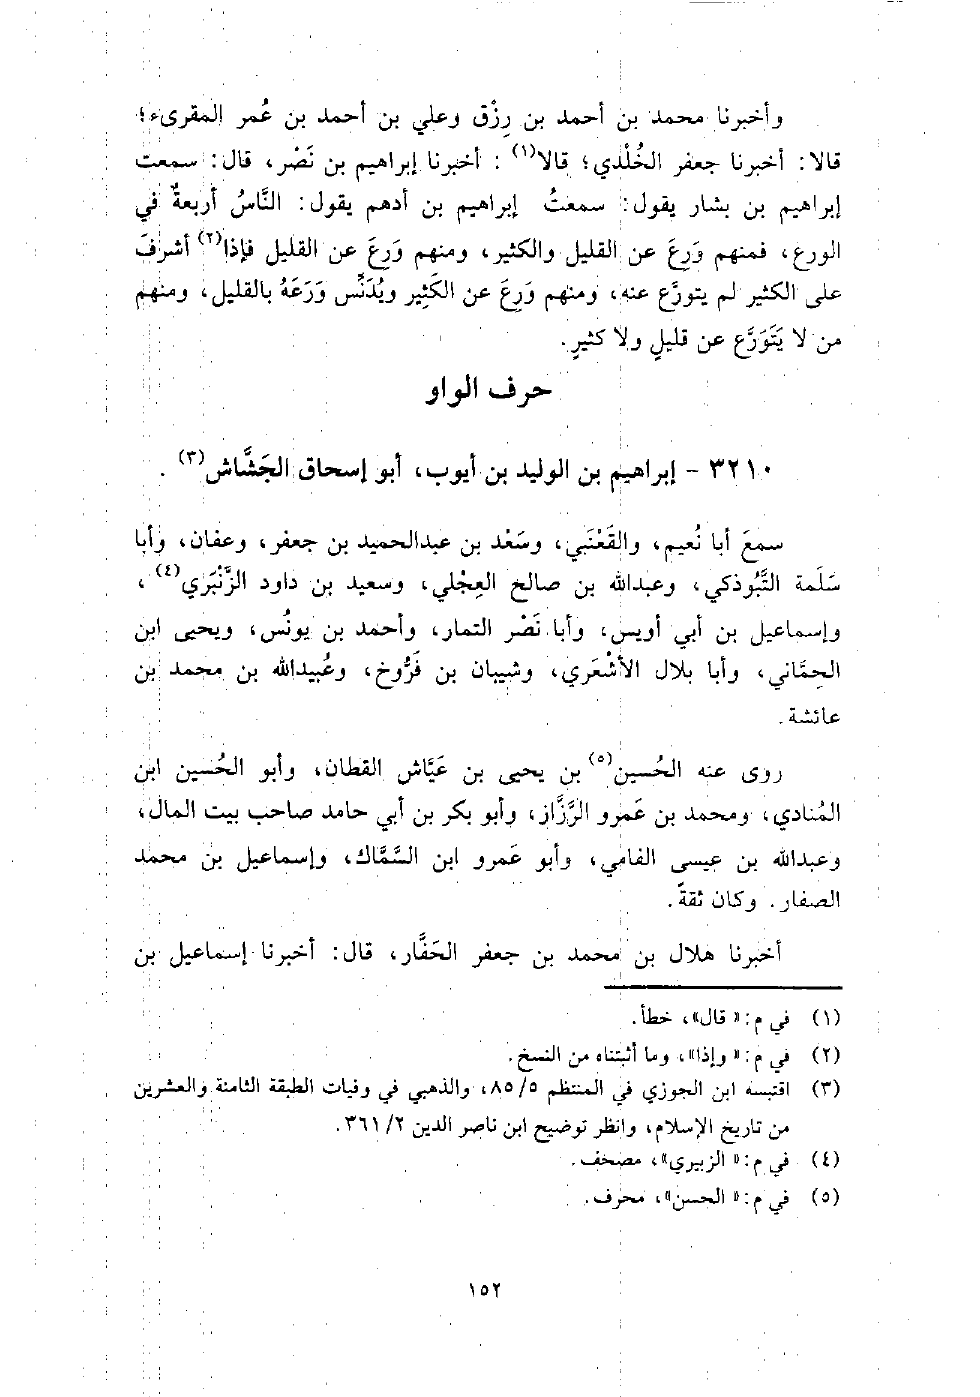 وأخبرنا محمد بن أحمد بن رِزْق وعلي بن أحمد بن عُمر المقرىء؛
قالا: أخبرنا جعفر الخُلْدي؛ قالا(١) : أخبرنا إبراهيم بن نَصْر، قال: سمعت
إبراهيم بن بشار يقول: سمعتُ إبراهيم بن أدهم يقول: النَّاسُ أربعةٌ في
الورع، فمنهم وَرِعَ عن القليل والكثير، ومنهم وَرِعَ عن القليل فإذا(٢) أشرفَ
على الكثير لم يتورَّع عنه، ومنهم وَرِعَ عن الكَثِير ويُدَنِّس وَرَعَهُ بالقليل، ومنهم
من لا يَتَوَرَّع عن قليلٍ ولا كثيرٍ.
حرف الواو
٣٢١٠ - إبراهيم بن الوليد بن أيوب، أبو إسحاق الجَشَّاش(٣) .
سمعَ أبا نُعيم، والقَعْنَبي، وسَعْد بن عبدالحميد بن جعفر، وعفان، وأبا
سَلَمة التَّبُوذكي، وعبدالله بن صالح العِجْلي، وسعيد بن داود الزَّنْبَري(٤) ،
وإسماعيل بن أبي أويس، وأبا نَصْر التمار، وأحمد بن يونُس، ويحيى ابن
الحِمَّاني، وأبا بلال الأشْعَري، وشيبان بن فَرُّوخ، وعُبيدالله بن محمد بن
عائشة.
روى عنه الحُسين(٥) بن يحيى بن عَيَّاش القطان، وأبو الحُسين ابن
المُنادي، ومحمد بن عَمرو الرَّزَّاز، وأبو بكر بن أبي حامد صاحب بيت المال،
وعبدالله بن عيسى الفامي، وأبو عَمرو ابن السَّمَّاك، وإسماعيل بن محمد
الصفار. وكان ثقةً.
أخبرنا هلال بن محمد بن جعفر الحَفَّار، قال: أخبرنا إسماعيل بن
(١) في م: «قال»، خطأ.
(٢) في م: «وإذا»، وما أثبتناه من النسخ.
(٣) اقتبسه ابن الجوزي في المنتظم ٥/ ٨٥، والذهبي في وفيات الطبقة الثامنة والعشرين
من تاريخ الإسلام، وانظر توضيح ابن ناصر الدين ٢/ ٣٦١.
(٤) في م: «الزبيري»، مصحف.
(٥) في م: «الحسن»، محرف.
١٥٢